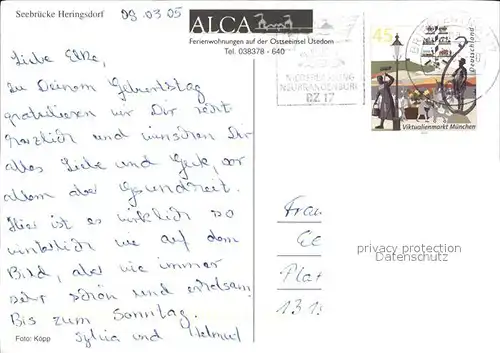 Seebrücke Heringsdorf
09.03.05
ALCA
Ferienwohnungen auf der Ostseeinsel Usedom
Tel. 038378 - 640
45
Deutschland
Viktualienmarkt München
NIEDERLASSUNG
NEUBRANDENBURG
BZ 17
Liebe Elke,
zu Deinem Geburtstag
gratulieren wir Dir recht
herzlich und wünschen Dir
alles Liebe und Gute, vor
allem aber Gesundheit.
Hier ist es wirklich so
winterlich wie auf dem
Bild, aber wie immer
sehr schön und erholsam.
Bis zum Sonntag.
Sylvia und Helmut
Foto: Köpp
Frau
privacy protection
Datenschutz